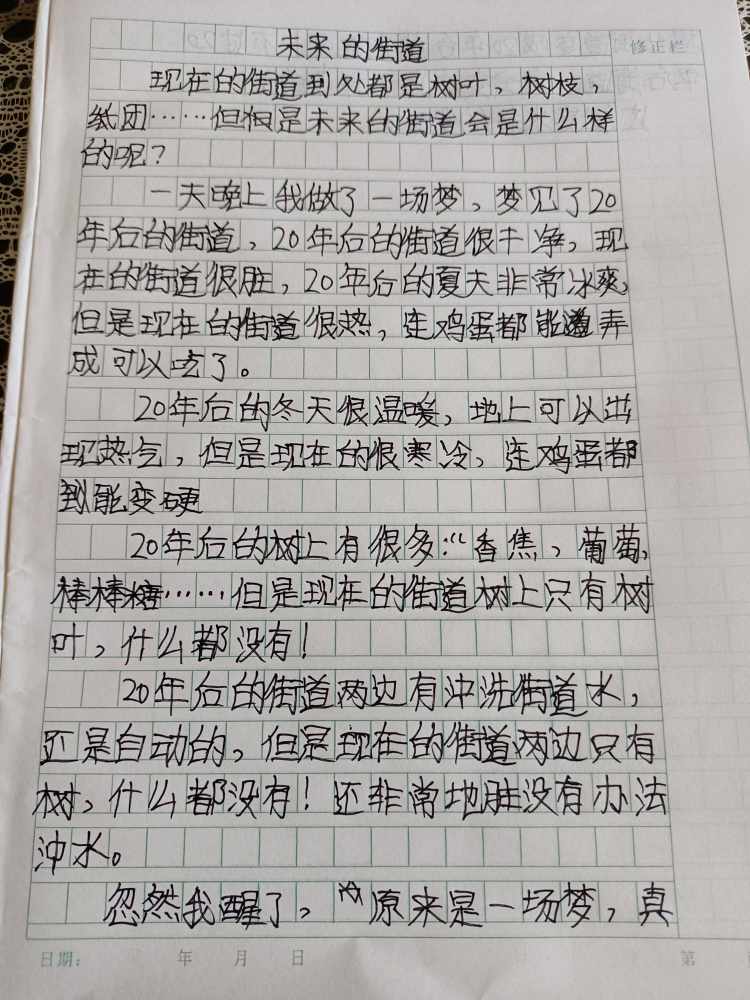 未来的街道
修正栏
现在的街道到处都是树叶，树枝，
纸团……但但是未来的街道会是什么样
的呢？
一天晚上我做了一场梦，梦见了20
年后的街道，20年后的街道很干净，现
在的街道很脏，20年后的夏天非常冰爽，
但是现在的街道很热，连鸡蛋都能弄
成可以吃了。
20年后的冬天很温暖，地上可以出
现热气，但是现在的很寒冷，连鸡蛋都
能变硬
20年后的树上有很多：“香焦，葡萄，
棒棒糖……但是现在的街道树上只有树
叶，什么都没有！
20年后的街道两边有冲洗街道水，
还是自动的，但是现在的街道两边只有
树，什么都没有！还非常地脏没有办法
冲水。
忽然我醒了，“原来是一场梦，真
日期： 年 月 日
第